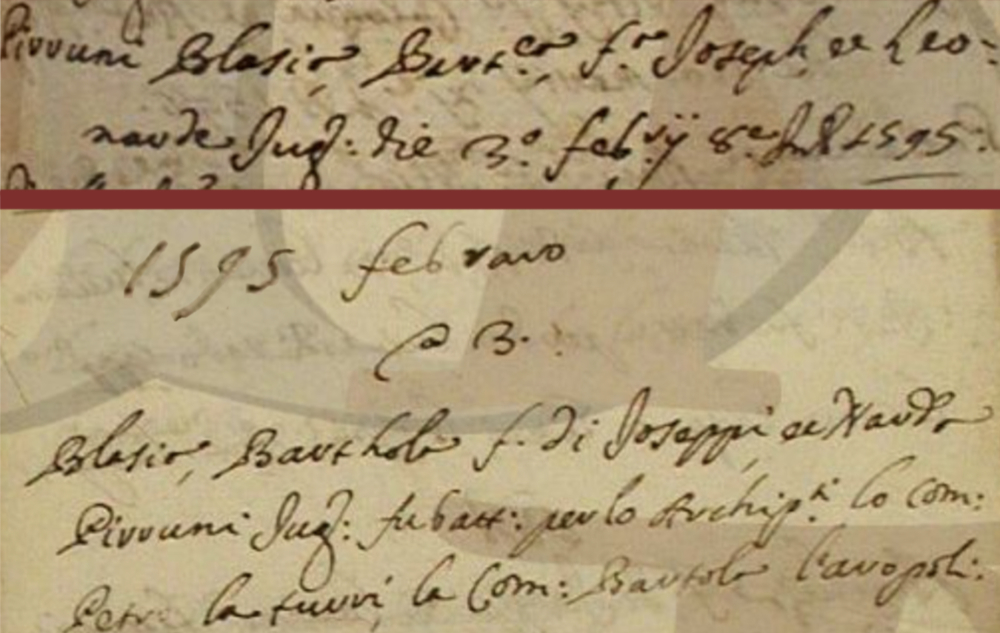 Pirruni Blasio, Bart.ea f.a Joseph et Leo-
narde Jug: die 3.° feb.rij 8.e Ind. 1595.
1595 febraro
a 3.
Blasio, Barthola f. di Joseppi et Narda
Pirruni Jug: fu batt: per lo Archip.ti lo Com:
Petro la turri, la Com: Bartola l'avopoli: